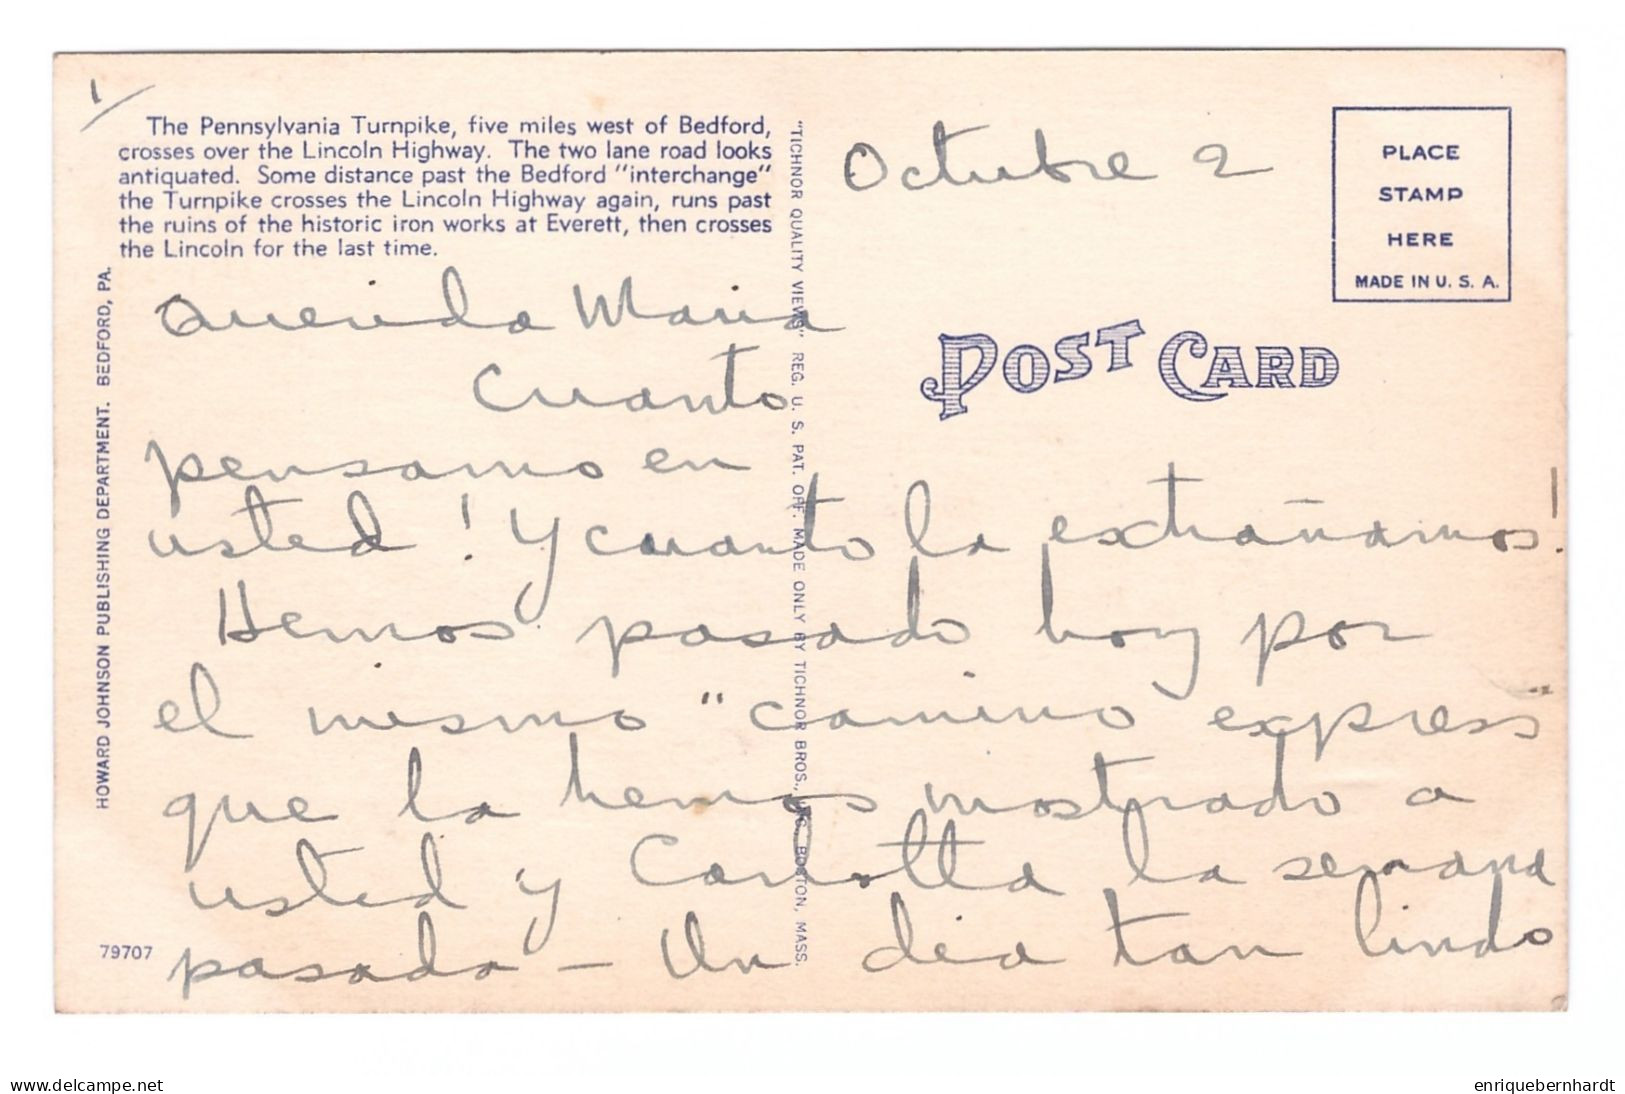 1/
The Pennsylvania Turnpike, five miles west of Bedford,
crosses over the Lincoln Highway. The two lane road looks
antiquated. Some distance past the Bedford "interchange"
the Turnpike crosses the Lincoln Highway again, runs past
the ruins of the historic iron works at Everett, then crosses
the Lincoln for the last time.
HOWARD JOHNSON PUBLISHING DEPARTMENT. BEDFORD, PA.
79707
"TICHNOR QUALITY VIEWS" REG. U. S. PAT. OFF. MADE ONLY BY TICHNOR BROS., INC., BOSTON, MASS.
PLACE
STAMP
HERE
MADE IN U. S. A.
POST CARD
Octubre 2
Querida Maria
Cuanto
pensamo en
usted! Y cuanto la extrañamos!
Hemos pasado hoy por
el mismo "camino express"
que la hemos mostrado a
usted y Carlotta la semana
pasada – Un dia tan lindo
delcampe.net
enriquebernhardt